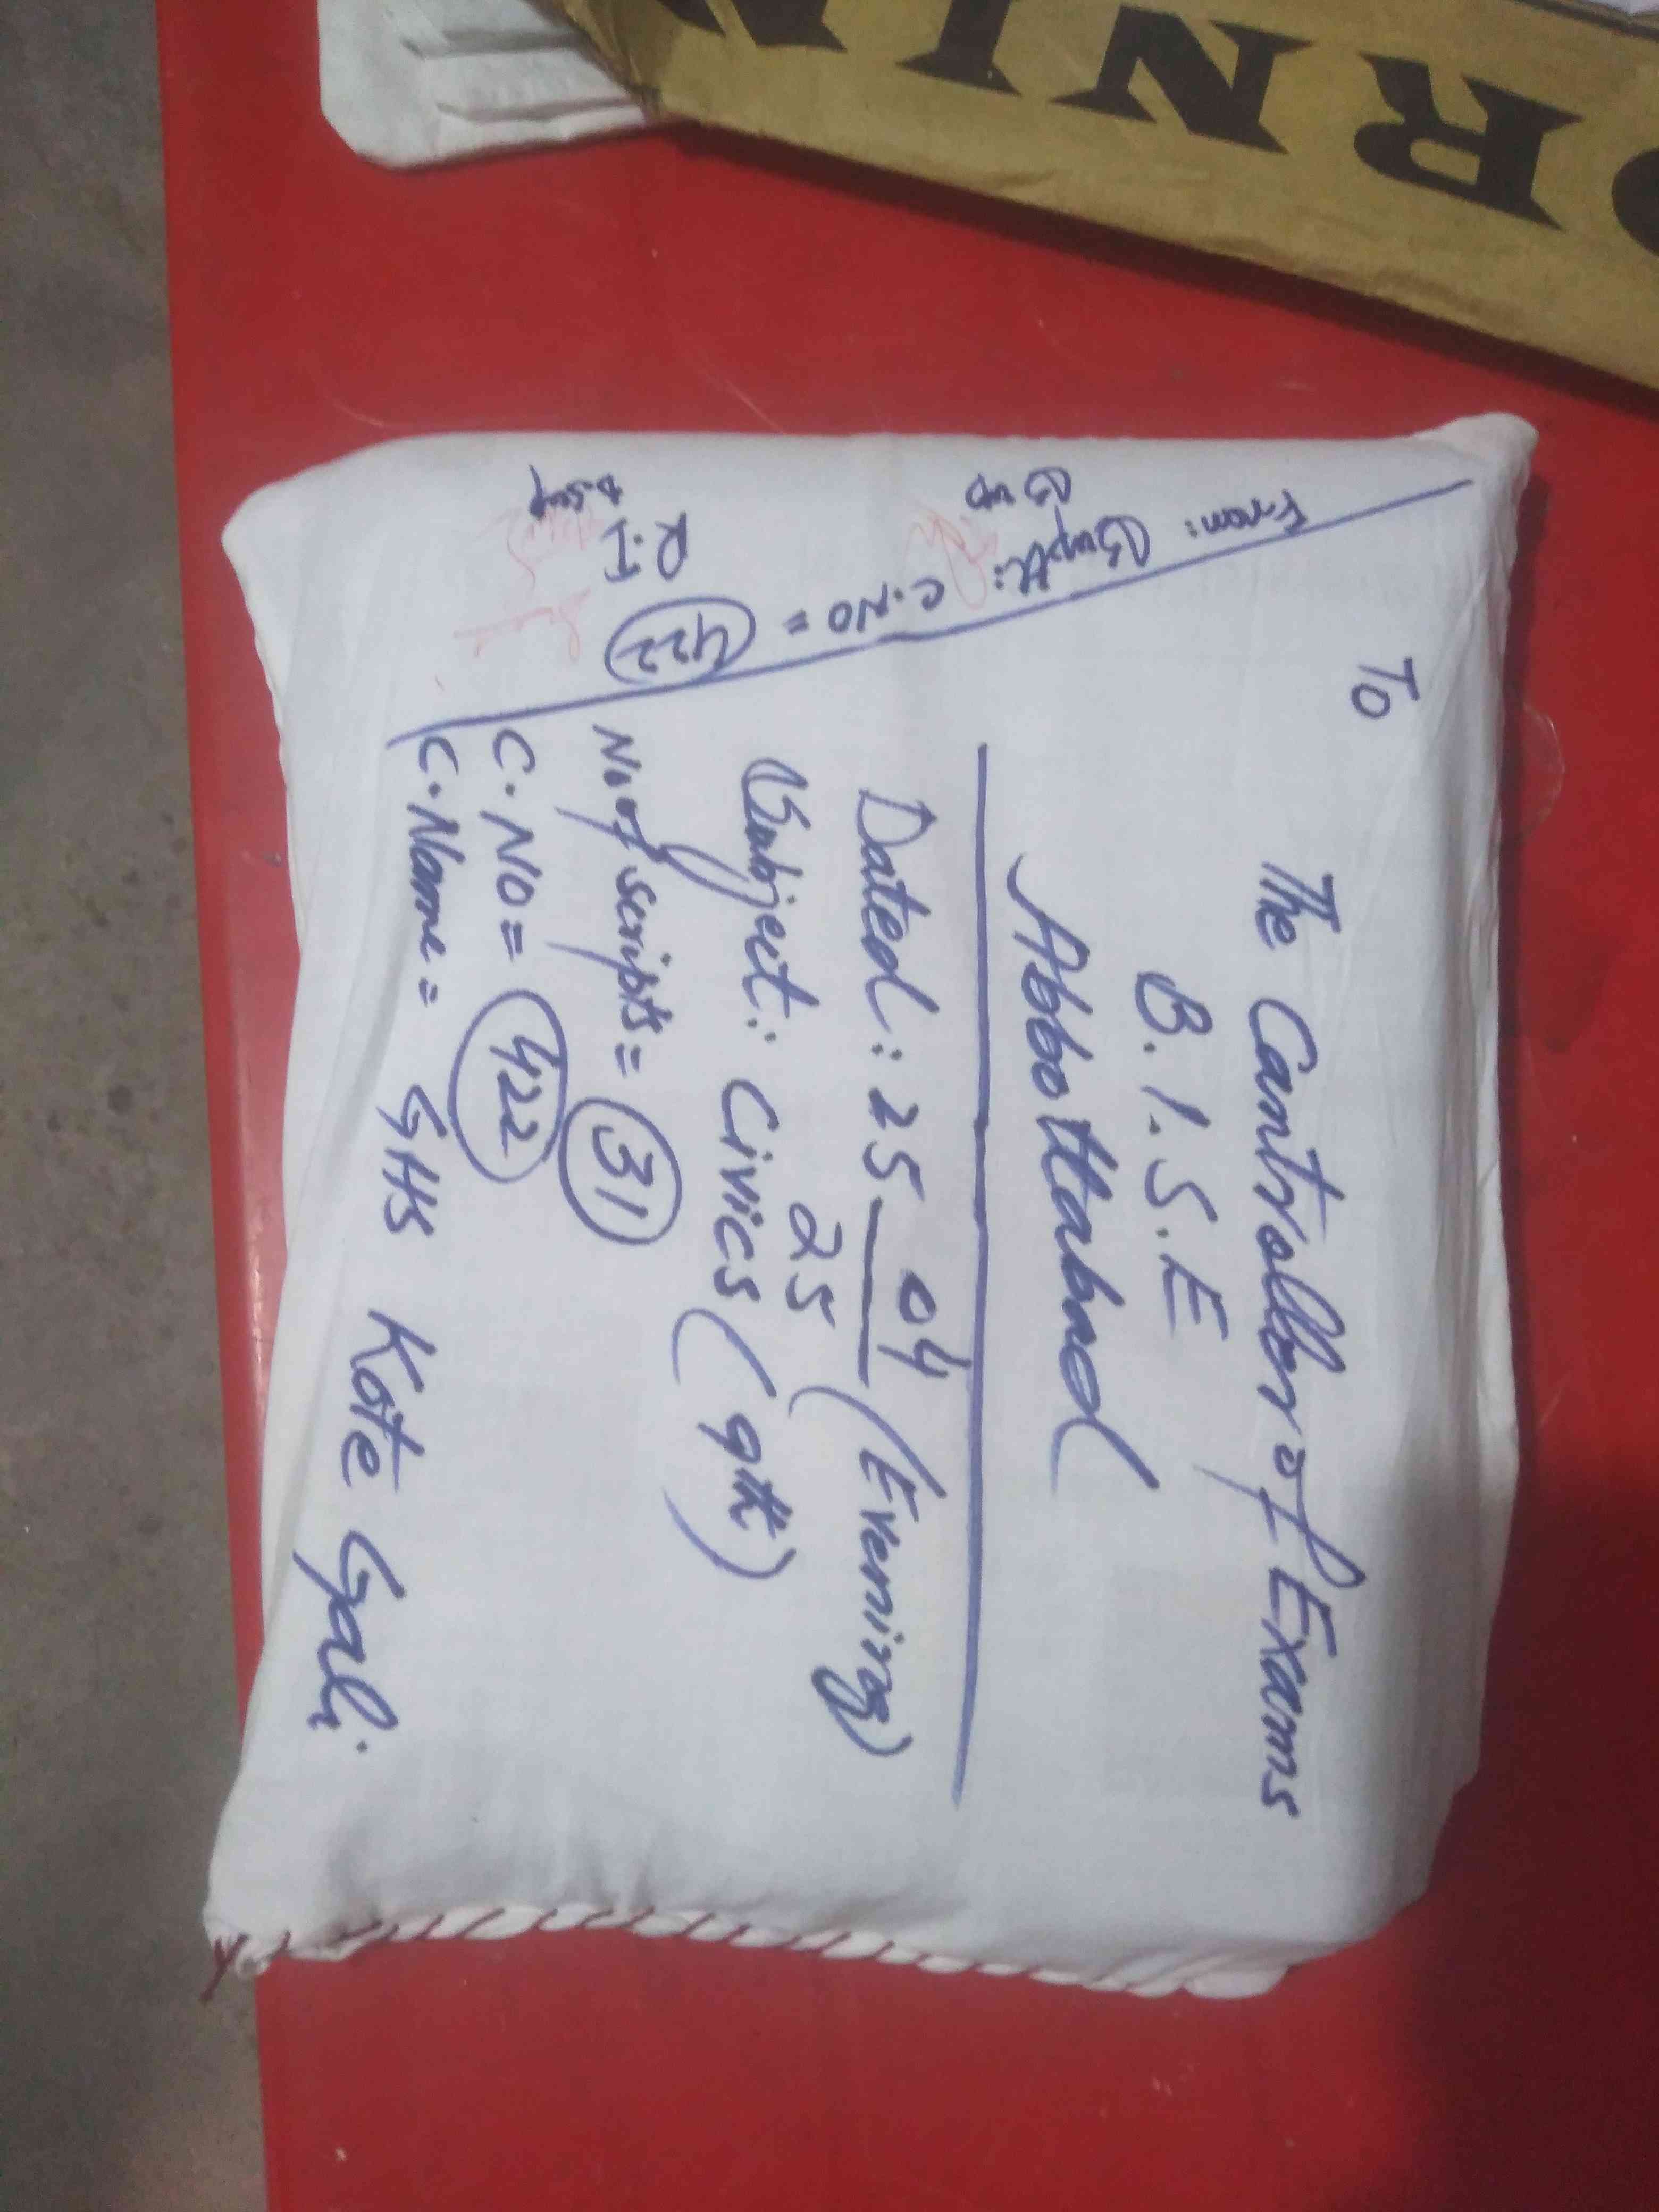 ORNIN
To
The Controller of Exams
B.I.S.E
Abbottabad
Dated: 25 04 (Evening)
25
Subject: Civics (9th)
No of scripts = 31
C.NO = 422
C.Name = GHS Kote Gali.
From: Suptt: C.NO = 422
Sup
R.I
D.Sup